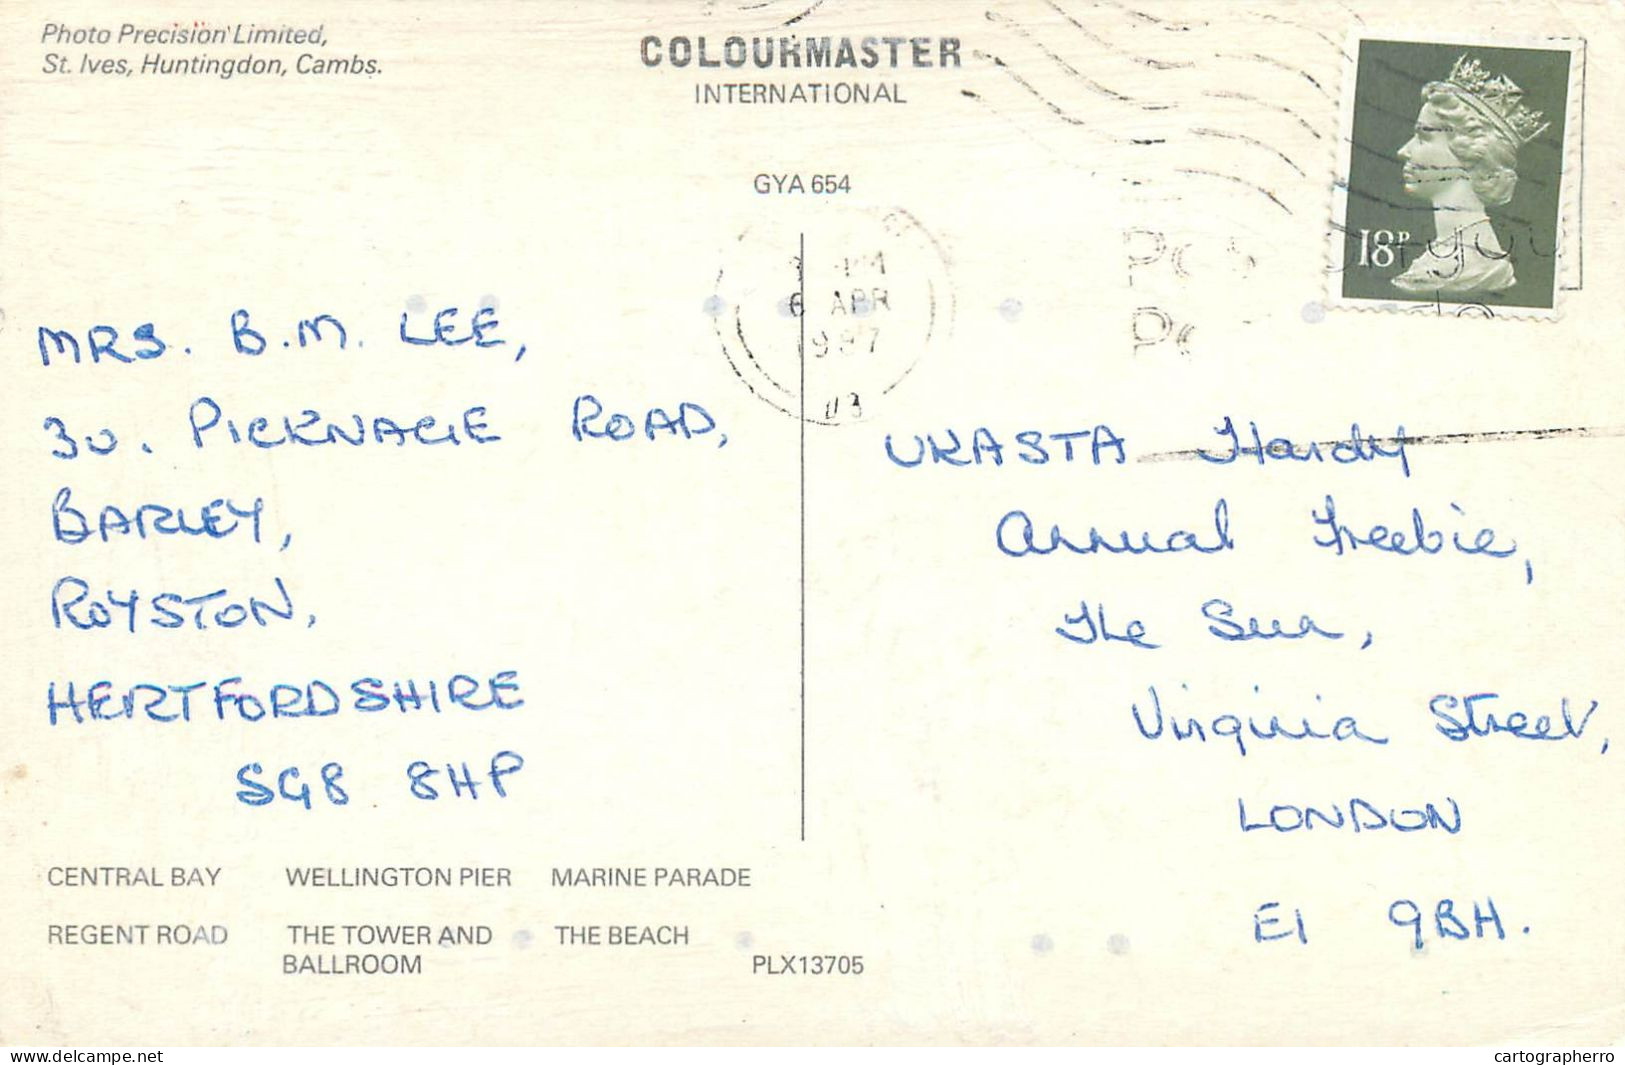 Photo Precision Limited,
St. Ives, Huntingdon, Cambs.
COLOURMASTER
INTERNATIONAL
GYA 654
18P
6 APR
MRS. B.M. LEE,
30. PICKNAGE ROAD,
BARLEY,
ROYSTON,
HERTFORDSHIRE
SG8 8HP
UKASTA Hardy
Annual Freebie,
The Sun,
Virginia Street,
LONDON
E1 9BH.
CENTRAL BAY WELLINGTON PIER MARINE PARADE
REGENT ROAD THE TOWER AND BALLROOM THE BEACH
PLX13705
delcampe.net
cartographerro